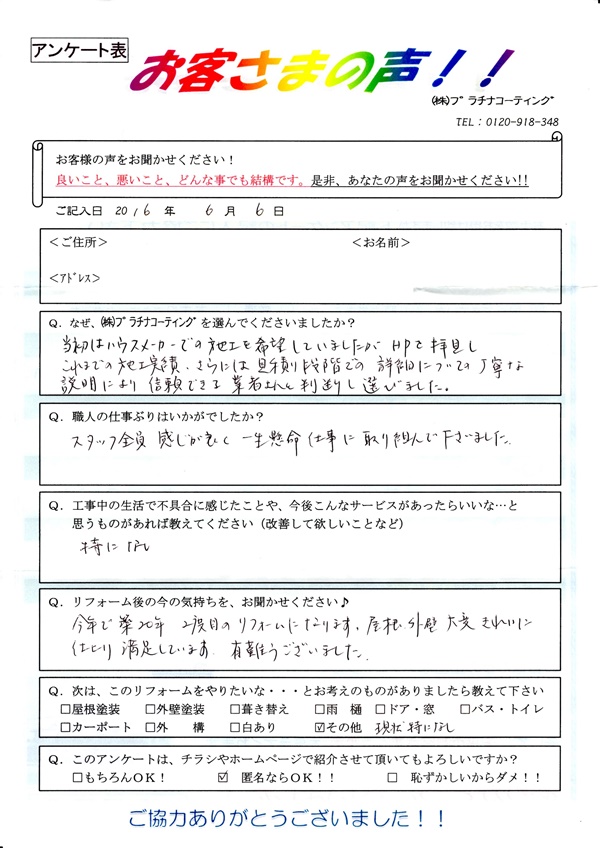 アンケート表
お客さまの声！！
㈱プラチナコーティング
TEL：0120-918-348
お客様の声をお聞かせください！
良いこと、悪いこと、どんな事でも結構です。是非、あなたの声をお聞かせください!!
ご記入日 2016 年 6 月 6 日
<ご住所> <お名前>
<アドレス>
Q．なぜ、㈱プラチナコーティングを選んでくださいましたか？
当初はハウスメーカーでの施工を希望していましたが HPを拝見し
これまでの施工実績、さらには見積り段階での詳細についての丁寧な
説明により信頼できる業者さんと判断し選びました。
Q．職人の仕事ぶりはいかがでしたか？
スタッフ全員 感じが良く 一生懸命 仕事に取り組んで下さいました。
Q．工事中の生活で不具合に感じたことや、今後こんなサービスがあったらいいな…と
思うものがあれば教えてください（改善して欲しいことなど）
特になし
Q．リフォーム後の今の気持ちを、お聞かせください♪
今年で築20年 2度目のリフォームになります。屋根、外壁 大変 きれいに
仕上り 満足しています。有難うございました。
Q．次は、このリフォームをやりたいな・・・とお考えのものがありましたら教えて下さい
□屋根塗装 □外壁塗装 □葺き替え □雨 樋 □ドア・窓 □バス・トイレ
□カーポート □外 構 □白あり ☑その他 現状特になし
Q．このアンケートは、チラシやホームページで紹介させて頂いてもよろしいですか？
□もちろんOK！ ☑ 匿名ならOK！！ □ 恥ずかしいからダメ！！
ご協力ありがとうございました！！